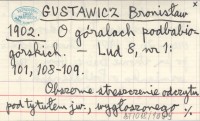 GUSTAWICZ Bronisław
1902. O góralach podbabio-
górskich. — Lud 8, nr 1:
101, 108-109.
Obszerne streszczenie odczytu
pod tytułem jw., wygłoszonego %.